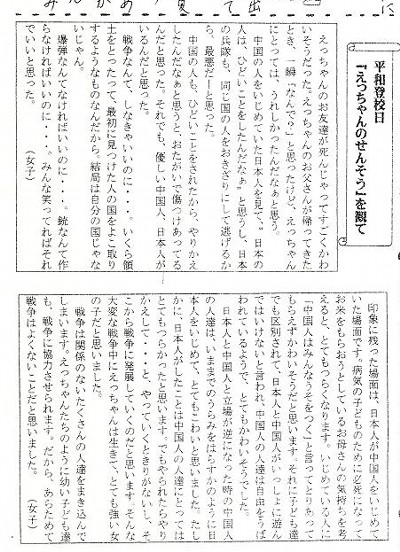 平和登校日
『えっちゃんのせんそう』を観て
えっちゃんのお友達が死んじゃってすごくかわ
いそうだった。えっちゃんのお父さんが帰ってきた
とき、一瞬「なんで？」と思ったけど、えっちゃん
にとっては、うれしかったんだなぁと思う。
中国の人をいじめていた日本人を見て、日本の
人は、ひどいことをしたんだなぁ」と思うし、日本
の兵隊も、同じ国の人をおきざりにして逃げるか
ら、最悪だーと思った。
中国の人も、ひどいことをされたから、やりかえ
したんだなぁと思うと、おたがいで傷つけあってる
んだと思った。それでも、優しい中国人、日本人が
いるんだと思った。
戦争なんて、しなきゃいいのに・・・。いくら領
土をとったって、最初に見つけた人の国をよこ取り
するようなものなんだから、結局は自分の国じゃな
いじゃん。
爆弾なんてなければいいのに・・・。銃なんて作
らなければいいのに・・・。みんな笑ってればそれ
でいいと思った。
（女子）
印象に残った場面は、日本人が中国人をいじめて
いた場面です。病気の子どものために必死になって
お米をもらおうとしているお母さんの気持ちを考
えると、とてもつらくなります。いじめている人に
「中国人はみんなうそをつく」と言ってとりあって
もらえずかわいそうだと思います。それに子ども達
でも区別されていて、日本人と中国人がいっしょに遊ん
ではいけないと言われ、中国人の人達は自由をうば
われているようで、とてもかわいそうでした。
日本人と中国人と立場が逆になった時の中国人
の人達は、いままでのうらみをはらすかのように日
本人をいじめて、とてもこわいと思いました。たし
かに、日本人がしたことは中国人の人達にとっては
とてもつらかったと思います。でもやられたらやり
かえして・・・と、やっていくときりがないし、そ
こから戦争に発展していくのだと思います。そんな
大変な戦争中にえっちゃんは生きて、とても強い女
の子だと思いました。
戦争は関係のないたくさんの人達をまき込んで
しまいます。えっちゃんたちのように幼い子ども達
も、戦争に協力させられます。だから、あらためて
戦争はよくないことだと思いました。
（女子）